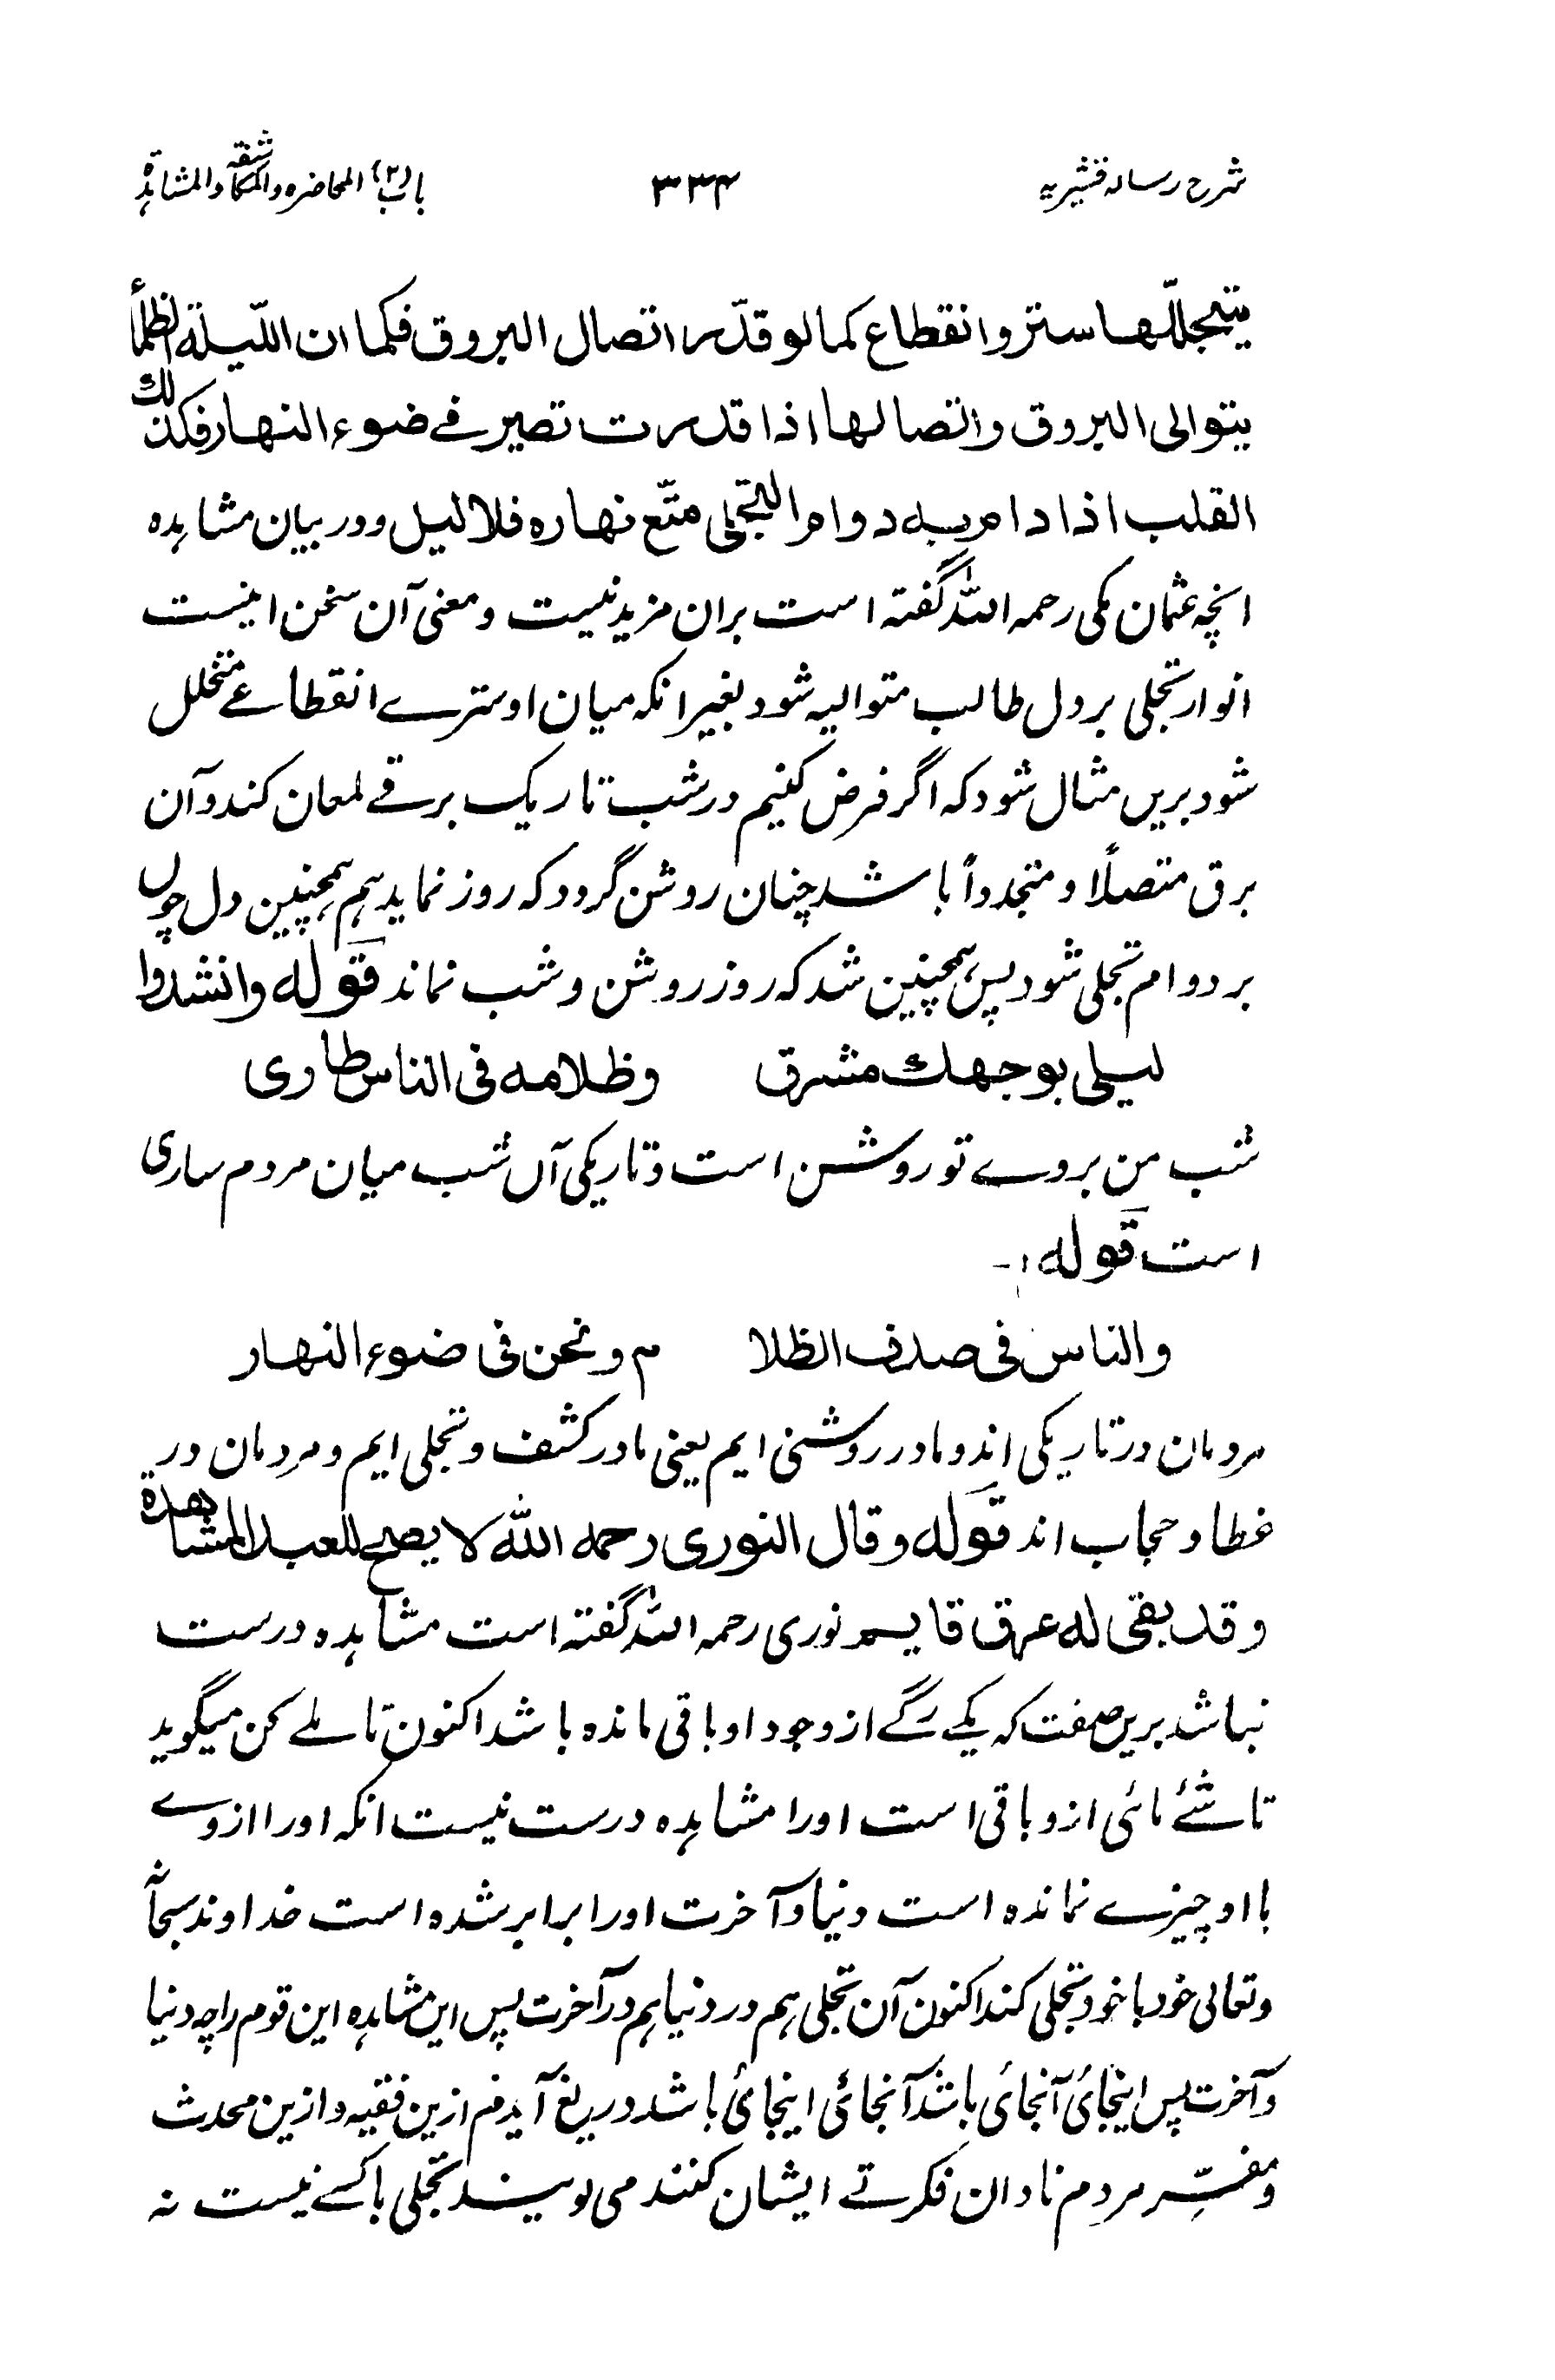 شرح رسالہ قشیریہ ۳۳۴ باب (۳) المحاضرہ والمکاشفہ والمشاہدۃ
یتجللها ستر وانقطاع کما لو قدّر اتصال البروق فکما ان اللّیلة الظلماء
بتوالی البروق واتصالها اذا قدرت تصیر فے ضوء النهار فکذلك
القلب اذا دام به دوام التجلی متّع نهاره فلا لیل ودر بیان مشاہدہ
انچہ عثمان مکی رحمہ اللہ گفتہ است بران مزید نیست و معنی آن سخن اینست
انوار تجلی بر دل طالب متوالیہ شود بغیر انکہ میان او سترے انقطاعے متخلل
شود بریں مثال شود کہ اگر فرض کنیم در شب تاریک برقے لمعان کند و آن
برق متصلاً و متجدداً باشد چنان روشن گردد کہ روز نماید ہم ہمچنین دل چوں
بر دوام تجلی شود پس ہمچنین شد کہ روز روشن و شب نماند قوله وانشدوا
لیلی بوجهك مشرق وظلامه فی الناس طاوی
شب من بروے تو روشن است و تاریکی آں شب میان مردم ساری
است قوله :-
والناس فی صدف الظلا م ونحن فی ضوء النهار
مردمان در تاریکی اند و ما در روشنی ایم یعنی ما در کشف و تجلی ایم و مردمان در
غطا و حجاب اند قوله وقال النوری رحمه الله لا یصح للعبد المشاهدة
وقد بقی له عرق قایم نوری رحمہ اللہ گفتہ است مشاہدہ درست
نباشد بریں صفت کہ یکے رگے از وجود او باقی ماندہ باشد اکنون تاملے کن میگوید
تا شئے مائی ازو باقی است اورا مشاہدہ درست نیست انکہ اورا ازوے
با او چیزے نماندہ است دنیا و آخرت اورا برابر شدہ است خداوند سبحانہ
وتعالی خود با خود تجلی کند اکنون آن تجلی ہم در دنیا ہم در آخرت پس این مشاہدہ این قوم را چہ دنیا
و آخرت پس اینجائ آنجائ باشد آنجائ اینجائ باشد دریغ آیدم ازین فقیہ و ازین محدث
و مفسّر مردم نادان فکرتے ایشان کنند می بویند تجلی با کسے نیست نہ